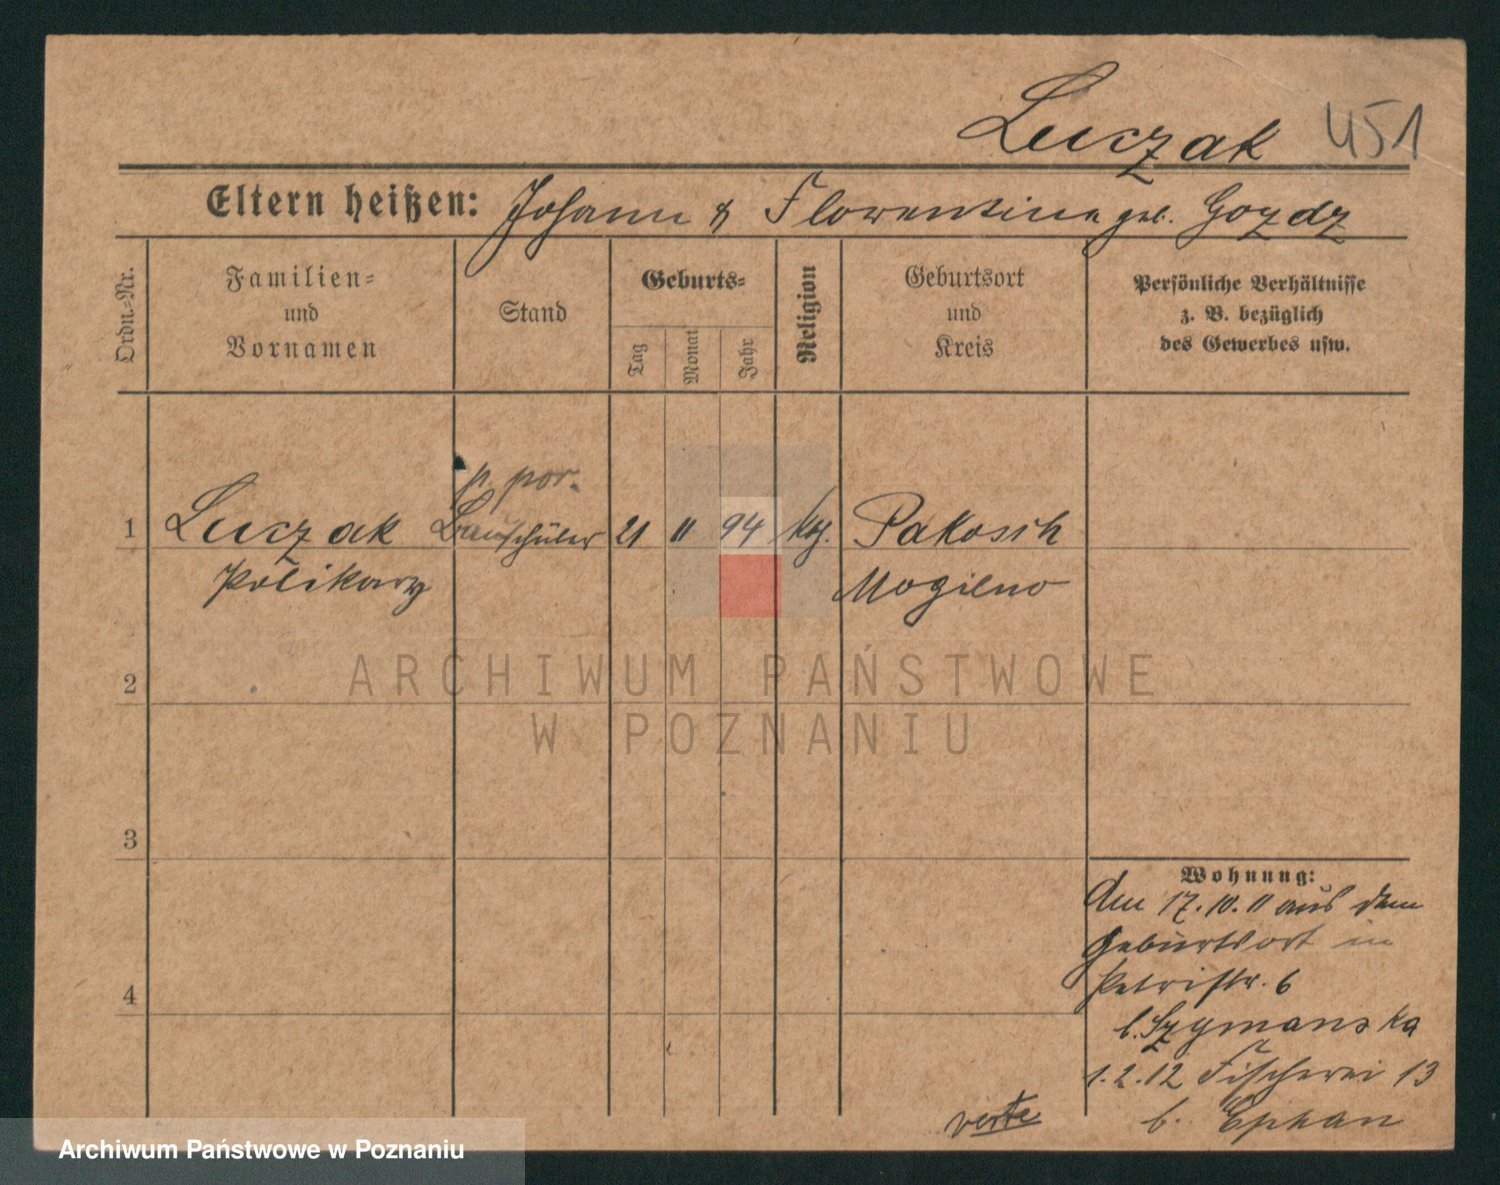 Luczak 451
Eltern heißen: Johann & Florentine geb. Gozdz
Ordn.-Nr.
Familien-
und
Vornamen
Stand
Geburts-
Tag
Monat
Jahr
Religion
Geburtsort
und
Kreis
Persönliche Verhältnisse
z. B. bezüglich
des Gewerbes usw.
p. por.
1 Luczak Bauschüler 21 11 94 kg. Pakosch
Polikarp Mogilno
2
3
4
Wohnung:
Am 17.10.11 aus dem
Geburtsort in
Petristr. 6
b. Szymanska
1.2.12 Fischerei 13
b. Ephan
verte
ARCHIWUM PAŃSTWOWE
W POZNANIU
Archiwum Państwowe w Poznaniu